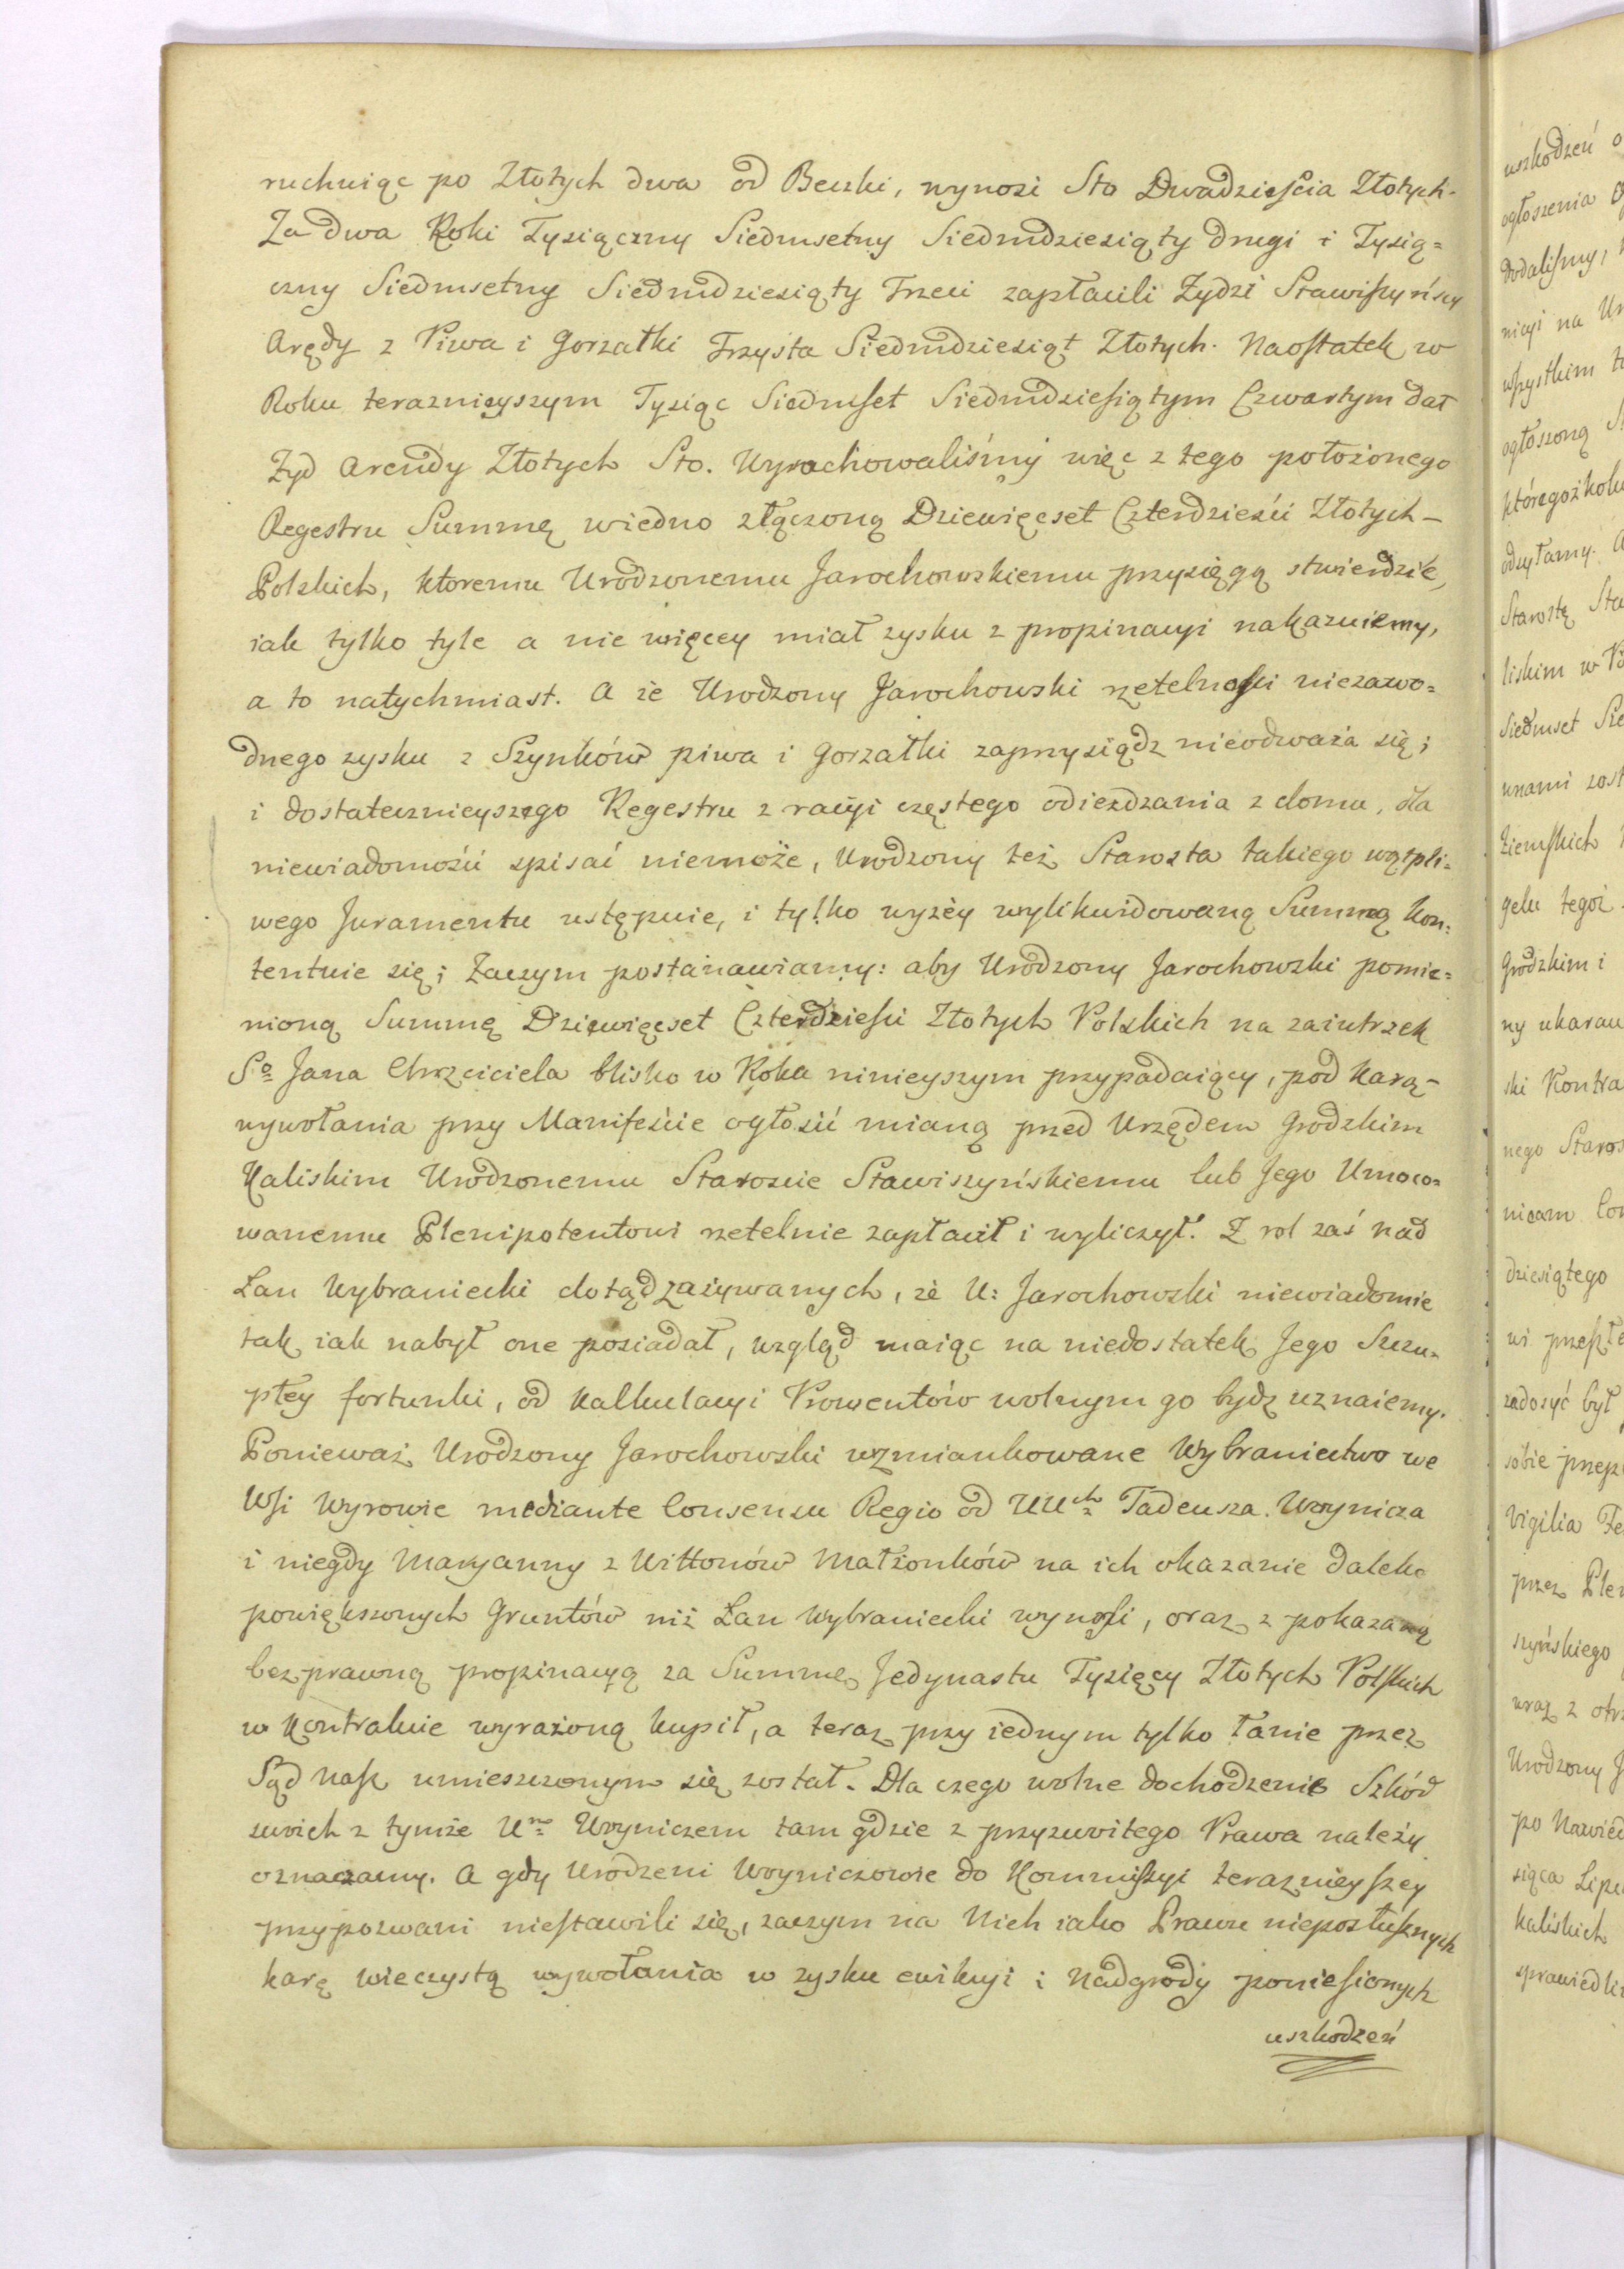 ruchuiąc po Złotych dwa od Beczki, wynosi Sto Dwadzieścia Złotych.
Za dwa Roki Tysiączny Siedmsetny Siedmdziesiąty drugi i Tysią=
czny Siedmsetny Siedmdziesiąty Trzeci zapłacili Żydzi Stawiszyńscy
Arędy z Piwa i Gorzałki Trzysta Siedmdziesiąt Złotych. Naostatek w
Roku teraznieyszym Tysiąc Siedmset Siedmdziesiątym Czwartym dał
Żyd Arendy Złotych Sto. Wyrachowaliśmy więc z tego położonego
Regestru Summę wiedno złączoną Dziewięcset Czterdzieści Złotych-
Polskich, ktoremu Urodzonemu Jarochowskiemu przysięgą stwierdzić,
iak tylko tyle a nie więcey miał zysku z propinacyi nakazuiemy,
a to natychmiast. A że Urodzony Jarochowski rzetelności niezawo=
dnego zysku z Szynków piwa i Gorzałki zaprzysiądz nieodważa się;
i dostatecznieyszego Regestru z racyi częstego odieżdzania z domu, dla
niewiadomości spisać niemoże, Urodzony też Starosta takiego wątpli=
wego Juramentu ustępuie, i tylko wyżey wylikwidowaną Summą Kon=
tentuie się; Zaczym postanawiamy: aby Urodzony Jarochowski pomie=
nioną Summę Dziewięcset Czterdzieści Złotych Polskich na zaiutrzek
So Jana Chrzciciela blisko w Roku ninieyszym przypadaiący, pod karą-
wywołania przy Manifeście ogłosić mianą przed Urzędem Grodzkim
Kaliskim Urodzonemu Staroscie Stawiszyńskiemu lub Jego Umoco=
wanemu Plenipotentowi rzetelnie zapłacił i wyliczył. Z rol zaś nad
Łan Wybraniecki dotąd zażywanych, że U: Jarochowski niewiadomie
tak iak nabył one posiadał, wzgląd maiąc na niedostatek Jego Szczu=
płey fortunki, od Kalkulacyi Prowentów wolnym go bydz uznaiemy.
Ponieważ Urodzony Jarochowski wzmiankowane Wybraniectwo we
Wsi Wyrowie mediante Consensu Regio od UUch Tadeusza Woynicza
i niegdy Maryanny z Wittonów Małżonków na ich okazanie daleko
powiększonych Gruntów niż Łan Wybraniecki wynosi, oraz z pokazaną
bezprawną propinacyą za Summę Jedynastu Tysięcy Złotych Polskich
w Kontrakcie wyrażoną kupił, a teraz przy iednym tylko łanie przez
Sąd Nasz umieszczonym się został. Dla czego wolne dochodzenie Szkód
swoich z tymże Um Woyniczem tam gdzie z przyzwoitego Prawa należy
oznaczamy. A gdy Urodzeni Woyniczowie do Kommissyi teraznieyszey
przypozwani niestawili się, zaczym na Nich iako Prawu nieposłusznych
karę wieczystą wywołania w zysku ewikcyi i Nadgrody poniesionych
uszkodzeń
uszkodzeń o
ogłoszenia
dodaliśmy,
nicyi na Ur
wszystkim
ogłoszoną
któregożkolw
odsyłamy. A
Starostę Sta
liskim w
Siedmset Sie
unami zost
Ziemskich
gelu tegoż
Grodzkim i
ny ukaran
ski Kontra
nego Staros
nicam Con
dziesiątego
wi przeszłe
zadosyć był
sobie przep
Vigilia Fe
przez Plen
szyńskiego
wraz z otr
Urodzony J
po Nawied
siąca Lipc
Kaliskich
sprawiedli